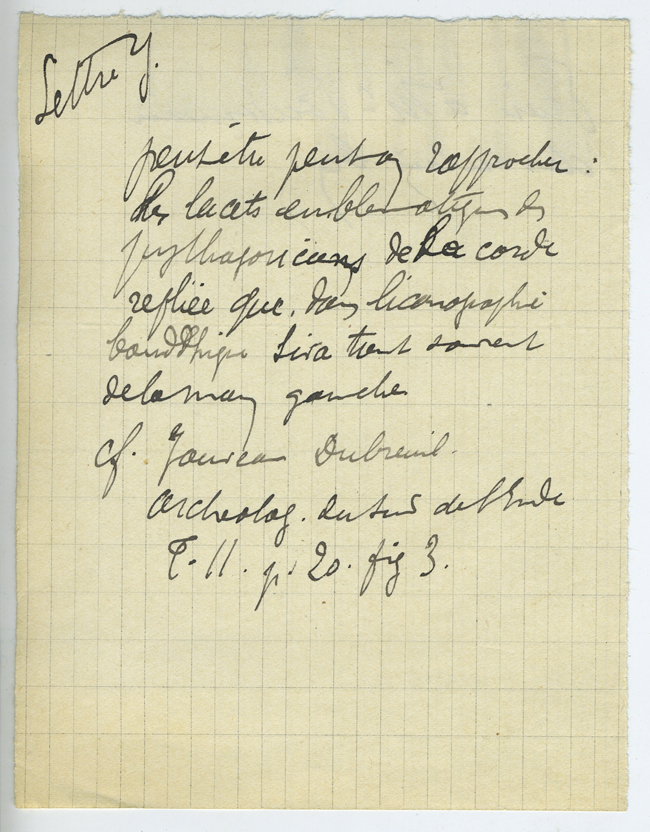 Lettre Y.
peut être peut on rapprocher :
les lacets emblematiques des
pythagoriciens de la corde
repliée que, dans l'iconographie
bouddhique Siva tient souvent
de la main gauche
cf. Jouveau Dubreuil.
Archeolog. du Sud de l'Inde
T. II. p. 20. fig 3.